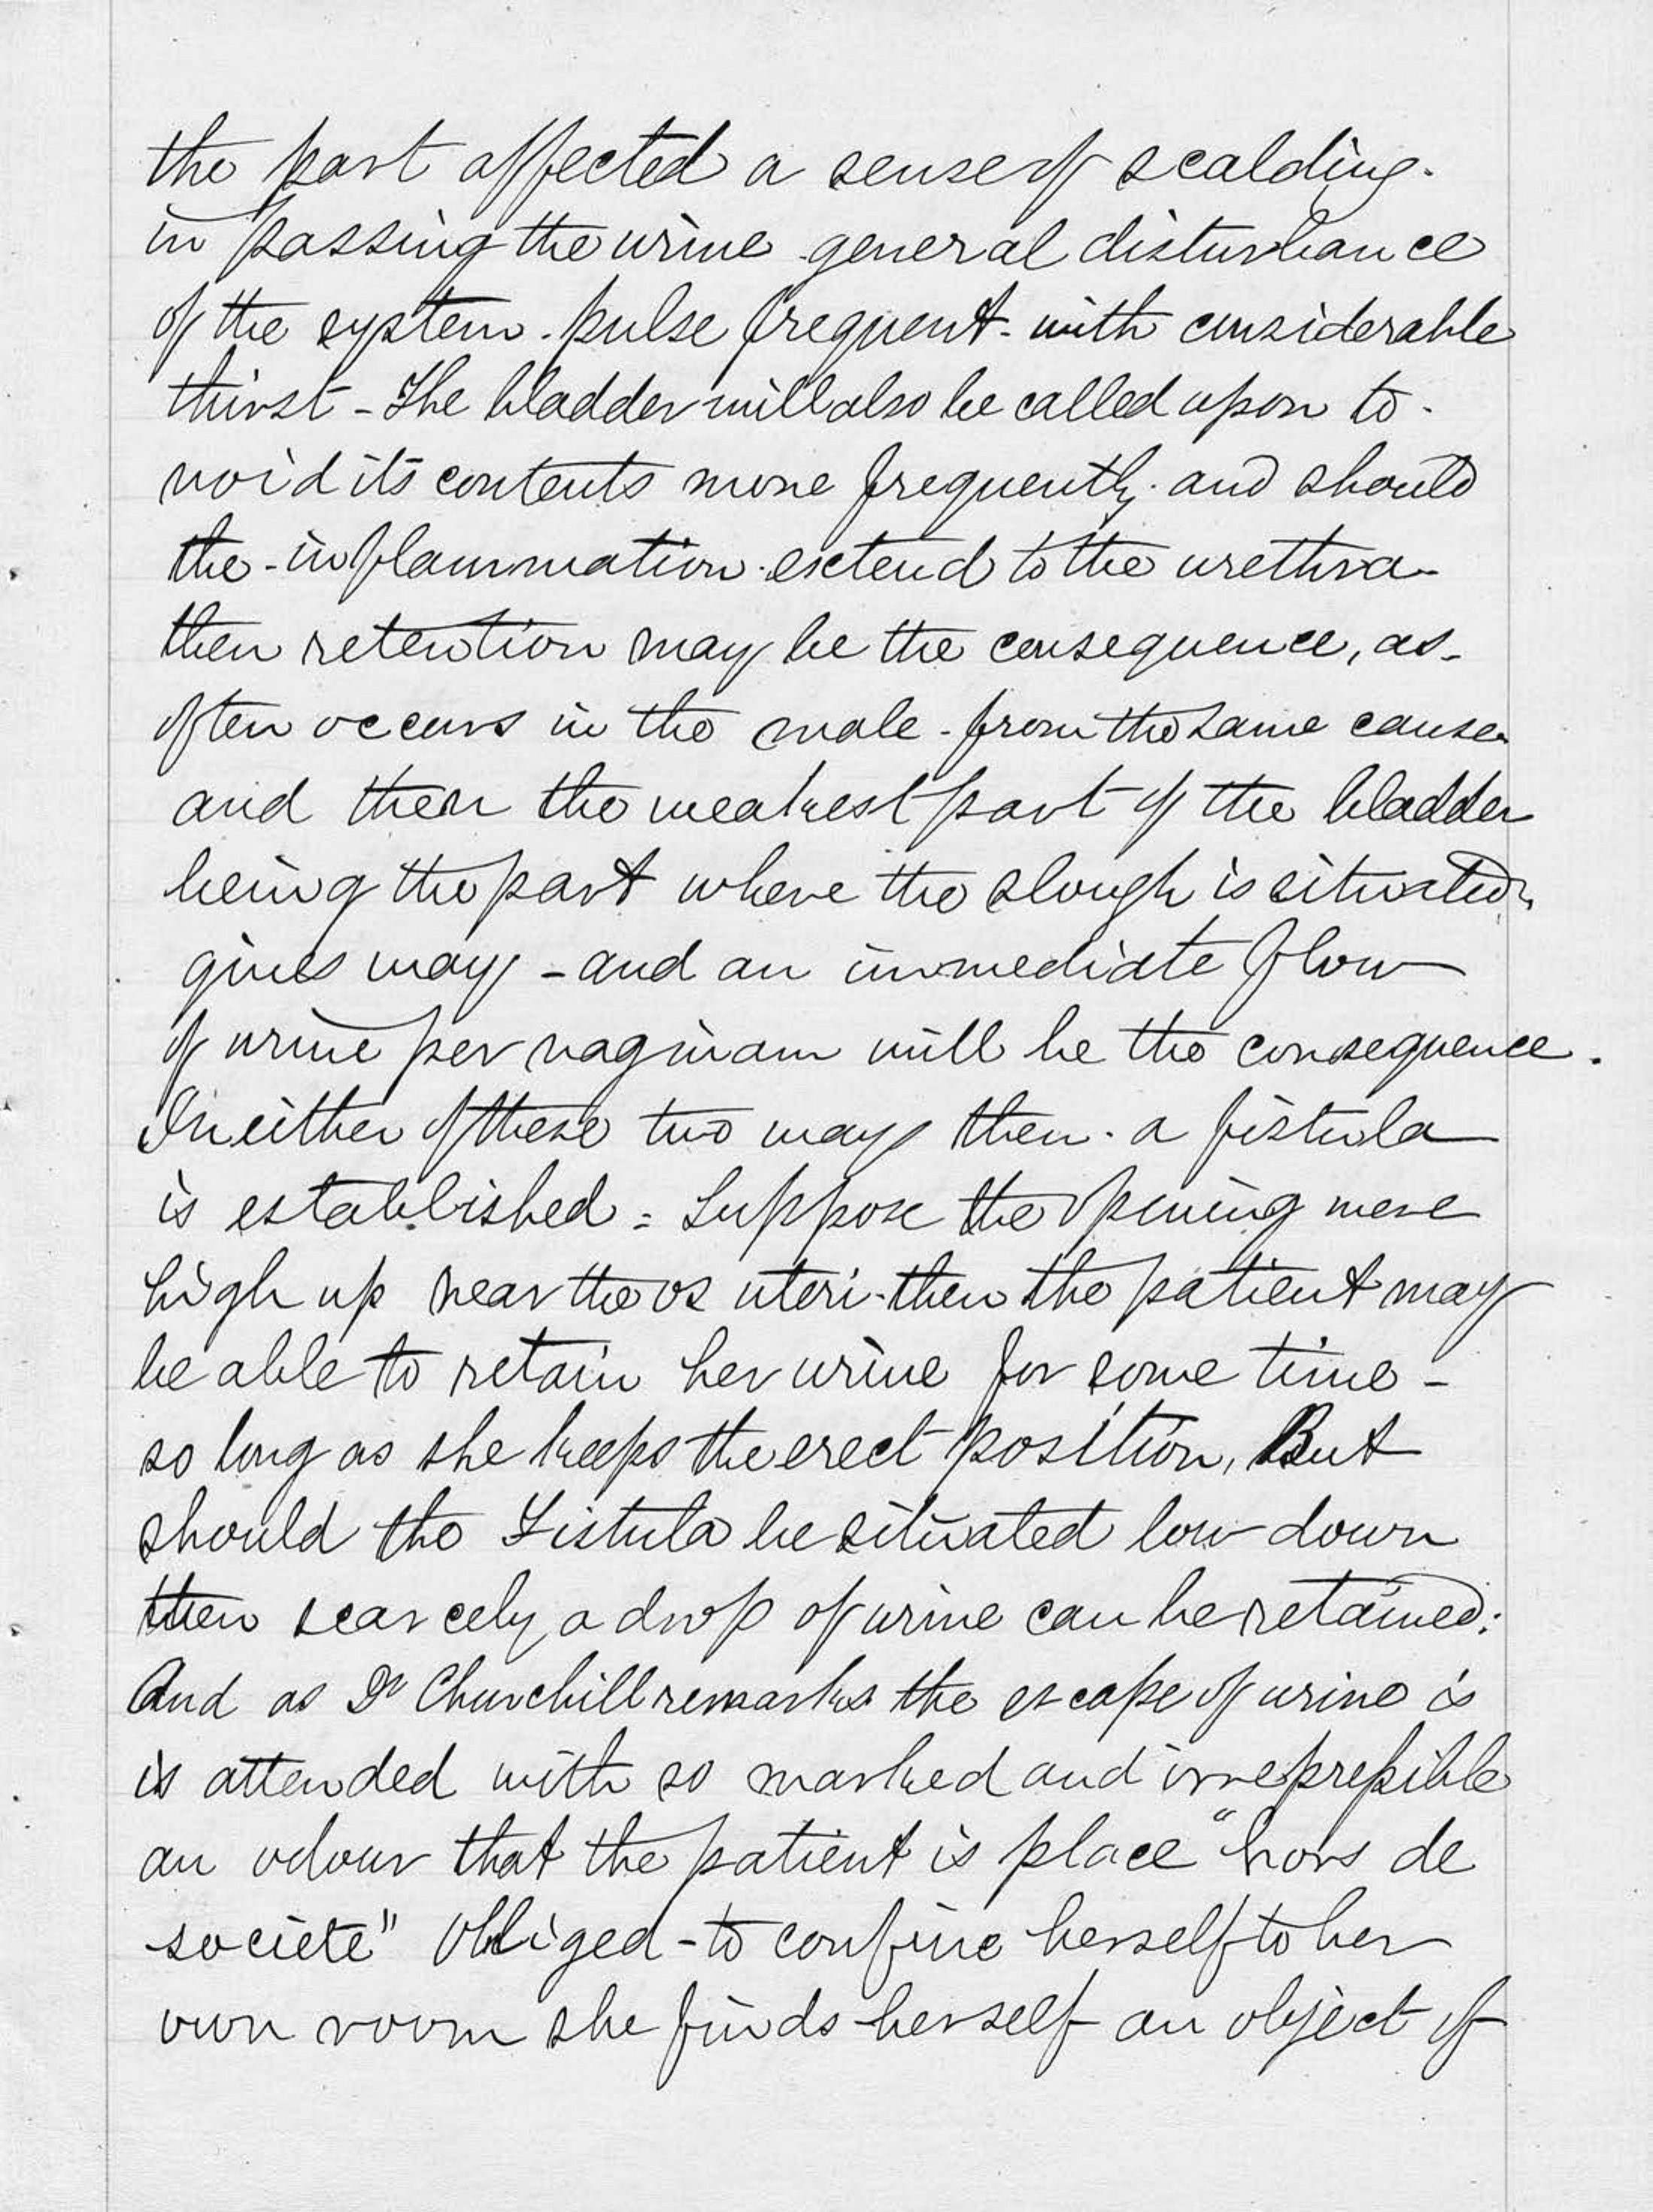 the part affected a sense of scalding.
in passing the urine general disturbance
of the system. pulse frequent - with considerable
thirst - The bladder will also be called upon to -
void its contents more frequently. and should
the - inflammation. extend to the urethra -
then retention may be the consequence, as -
often occurs in the male - from the same cause -
and then the weakest part of the bladder
being the part where the slough is situated,
gives way - and an immediate flow
of urine per vaginam will be the consequence.
In either of these two ways then. a fistula
is established = Suppose the opening were
high up near the os uteri - then the patient may
be able to retain her urine for some time -
so long as she keeps the erect position, But
should the Fistula be situated low down
then scarcely a drop of urine can be retained:
And as Dr Churchill remarks the escape of urine is
is attended with so marked and irrepressible
an odour that the patient is place "hors de
societé" Obliged - to confine herself to her
own room she finds herself an object of